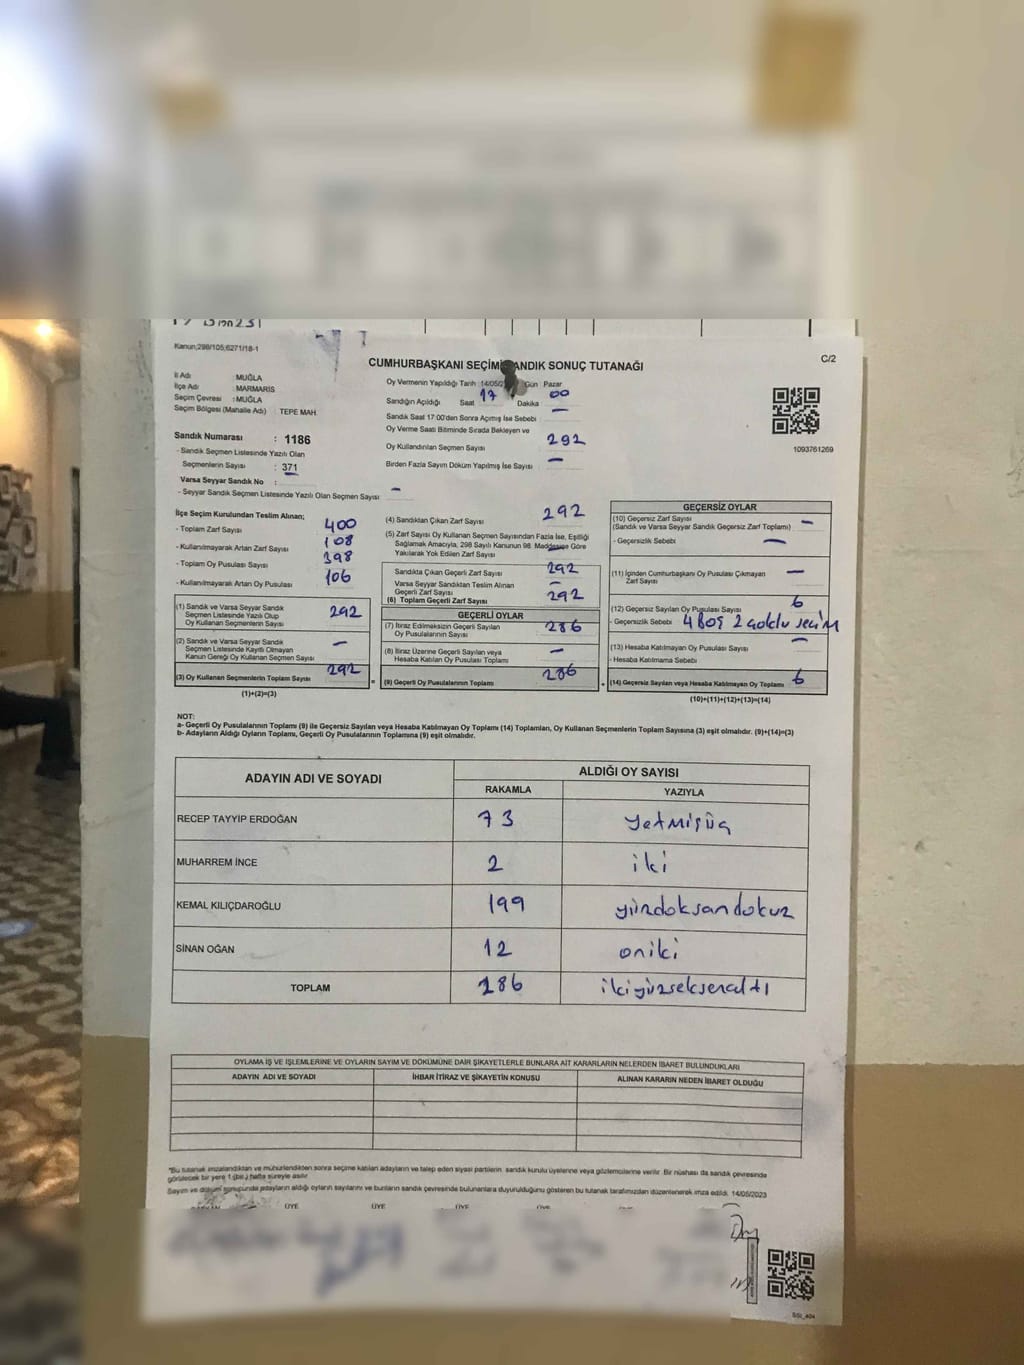 Kanun;298/105;6271/18-1
C/2
CUMHURBAŞKANI SEÇİMİ SANDIK SONUÇ TUTANAĞI
İl Adı : MUĞLA
İlçe Adı : MARMARİS
Seçim Çevresi : MUĞLA
Seçim Bölgesi (Mahalle Adı) : TEPE MAH.
Sandık Numarası : 1186
- Sandık Seçmen Listesinde Yazılı Olan
Seçmenlerin Sayısı : 371
Varsa Seyyar Sandık No :
- Seyyar Sandık Seçmen Listesinde Yazılı Olan Seçmen Sayısı –
Oy Vermenin Yapıldığı Tarih :14/05/2 Gün : Pazar
Sandığın Açıldığı Saat 17 Dakika : 00
Sandık Saat 17:00'den Sonra Açımış İse Sebebi : –
Oy Verme Saati Bitiminde Sırada Bekleyen ve
Oy Kullandırılan Seçmen Sayısı 292
Birden Fazla Sayım Döküm Yapılmış İse Sayısı –
1093761269
İlçe Seçim Kurulundan Teslim Alınan;
- Toplam Zarf Sayısı 400
- Kullanılmayarak Artan Zarf Sayısı 108
- Toplam Oy Pusulası Sayısı 398
- Kullanılmayarak Artan Oy Pusulası 106
(1) Sandık ve Varsa Seyyar Sandık
Seçmen Listesinde Yazılı Olup
Oy Kullanan Seçmenlerin Sayısı 292
(2) Sandık ve Varsa Seyyar Sandık
Seçmen Listesinde Kayıtlı Olmayan
Kanun Gereği Oy Kullanan Seçmen Sayısı –
(3) Oy Kullanan Seçmenlerin Toplam Sayısı 292
(1)+(2)=(3)
(4) Sandıktan Çıkan Zarf Sayısı 292
(5) Zarf Sayısı Oy Kullanan Seçmen Sayısından Fazla İse, Eşitliği
Sağlamak Amacıyla, 298 Sayılı Kanunun 98. Maddesine Göre
Yakılarak Yok Edilen Zarf Sayısı –
Sandıkta Çıkan Geçerli Zarf Sayısı 292
Varsa Seyyar Sandıktan Teslim Alınan
Geçerli Zarf Sayısı –
(6) Toplam Geçerli Zarf Sayısı 292
GEÇERLİ OYLAR
(7) İtiraz Edilmeksizin Geçerli Sayılan
Oy Pusulalarının Sayısı 286
(8) İtiraz Üzerine Geçerli Sayılan veya
Hesaba Katılan Oy Pusulaları Toplamı –
= (9) Geçerli Oy Pusulalarının Toplamı 286 +
GEÇERSİZ OYLAR
(10) Geçersiz Zarf Sayısı
(Sandık ve Varsa Seyyar Sandık Geçersiz Zarf Toplamı) –
- Geçersizlik Sebebi –
(11) İçinden Cumhurbaşkanı Oy Pusulası Çıkmayan
Zarf Sayısı –
(12) Geçersiz Sayılan Oy Pusulası Sayısı 6
- Geçersizlik Sebebi 4 Boş 2 çoklu seçim
(13) Hesaba Katılmayan Oy Pusulası Sayısı –
- Hesaba Katılmama Sebebi
(14) Geçersiz Sayılan veya Hesaba Katılmayan Oy Toplamı 6
(10)+(11)+(12)+(13)=(14)
NOT:
a- Geçerli Oy Pusulalarının Toplamı (9) ile Geçersiz Sayılan veya Hesaba Katılmayan Oy Toplamı (14) Toplamları, Oy Kullanan Seçmenlerin Toplam Sayısına (3) eşit olmalıdır. (9)+(14)=(3)
b- Adayların Aldığı Oyların Toplamı, Geçerli Oy Pusulalarının Toplamına (9) eşit olmalıdır.
ADAYIN ADI VE SOYADI ALDIĞI OY SAYISI
RAKAMLA YAZIYLA
RECEP TAYYİP ERDOĞAN 73 yetmişüç
MUHARREM İNCE 2 iki
KEMAL KILIÇDAROĞLU 199 yüzdoksandokuz
SİNAN OĞAN 12 oniki
TOPLAM 286 ikiyüzseksenaltı
OYLAMA İŞ VE İŞLEMLERİNE VE OYLARIN SAYIM VE DÖKÜMÜNE DAİR ŞİKAYETLERLE BUNLARA AİT KARARLARIN NELERDEN İBARET BULUNDUKLARI
ADAYIN ADI VE SOYADI İHBAR İTİRAZ VE ŞİKAYETİN KONUSU ALINAN KARARIN NEDEN İBARET OLDUĞU
*Bu tutanak imzalandıktan ve mühürlendikten sonra seçime katılan adayların ve talep eden siyasi partilerin, sandık kurulu üyelerine veya gözlemcilerine verilir. Bir nüshası da sandık çevresinde
görülecek bir yere 1 (bir) hafta süreyle asılır.
Sayım ve döküm sonucunda adayların aldığı oyların sayılarını ve bunların sandık çevresinde bulunanlara duyurulduğunu gösteren bu tutanak tarafımızdan düzenlenerek imza edildi. 14/05/2023
BAŞKAN ÜYE ÜYE ÜYE ÜYE ÜYE